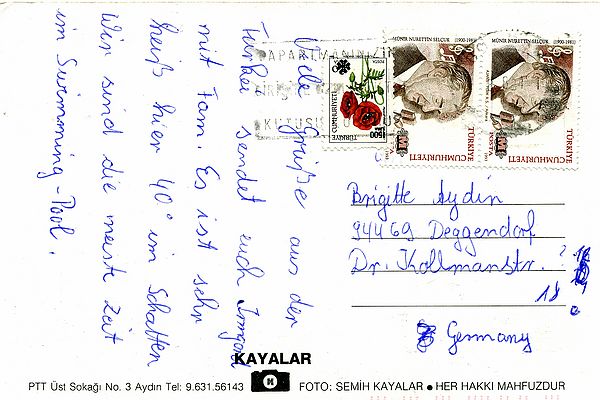 Viele Grüße aus der
Türkei sendet euch Irmgard
mit Fam. Es ist sehr
heiß hier 40° im Schatten
Wir sind die meiste Zeit
im Swimming-Pool.
MÜNİR NURETTİN SELÇUK (1900-1981)
MÜNİR NURETTİN SELÇUK (1900-1981)
POSTA
1500
TÜRKİYE CUMHURİYETİ
TÜRKİYE CUMHURİYETİ
TÜRKİYE CUMHURİYETİ
Brigitte Aydin
94469 Deggendorf
Dr. Kollmanstr. ?
18
Germany
KAYALAR
PTT Üst Sokağı No. 3 Aydın Tel: 9.631.56143 FOTO: SEMİH KAYALAR ● HER HAKKI MAHFUZDUR